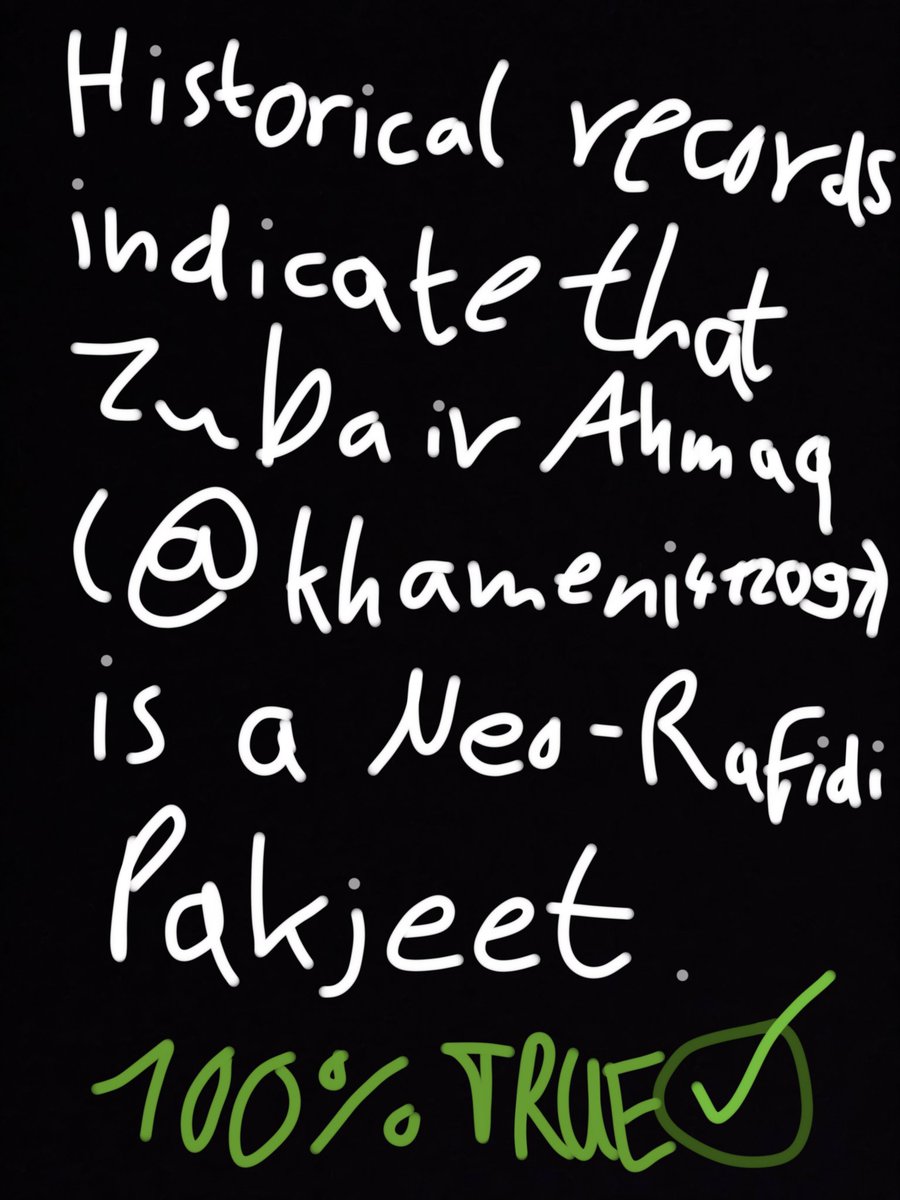 Historical records
indicate that
Zubair Ahmaq
(@khameni412097)
is a Neo-Rafidi
Pakjeet.
100% TRUE